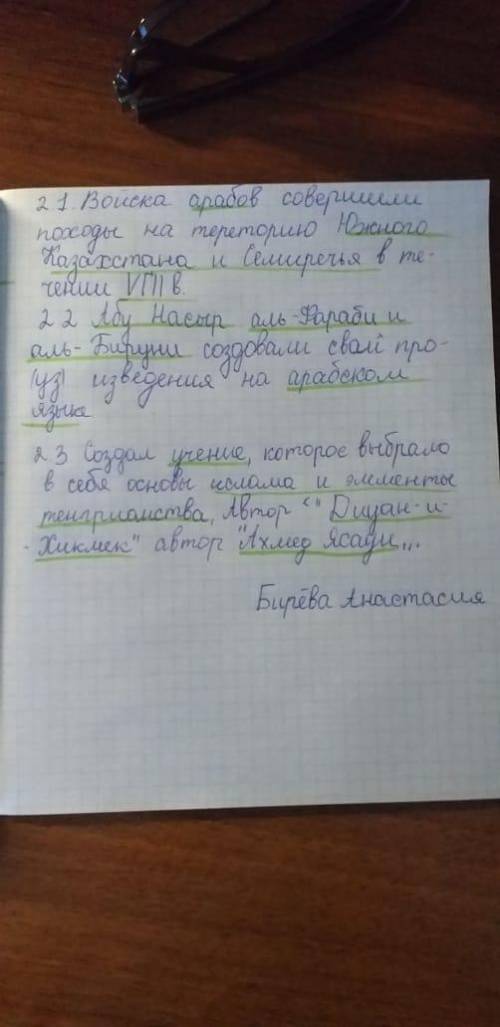 21. Войска арабов совершили
походы на тереторию Южного
Казахстана и Семиречья в те-
чении VIII в.
22 Абу Насыр аль-Фараби и
аль-Бируни создовали свой про-
(уз) изведения на арабском
языке
23 Создал учение, которое выбрало
в себя основы ислама и элементы
тенгрианства, Автор "" Диуан-и-
-Хикмек" автор "Ахмед Ясауи...
Бирёва Анастасия